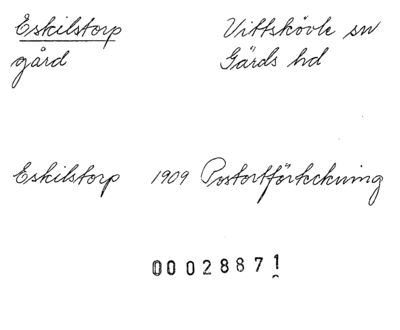 Eskilstorp Vittskövle sn
gård Gärds hd
Eskilstorp 1909 Postortförteckning
00028871